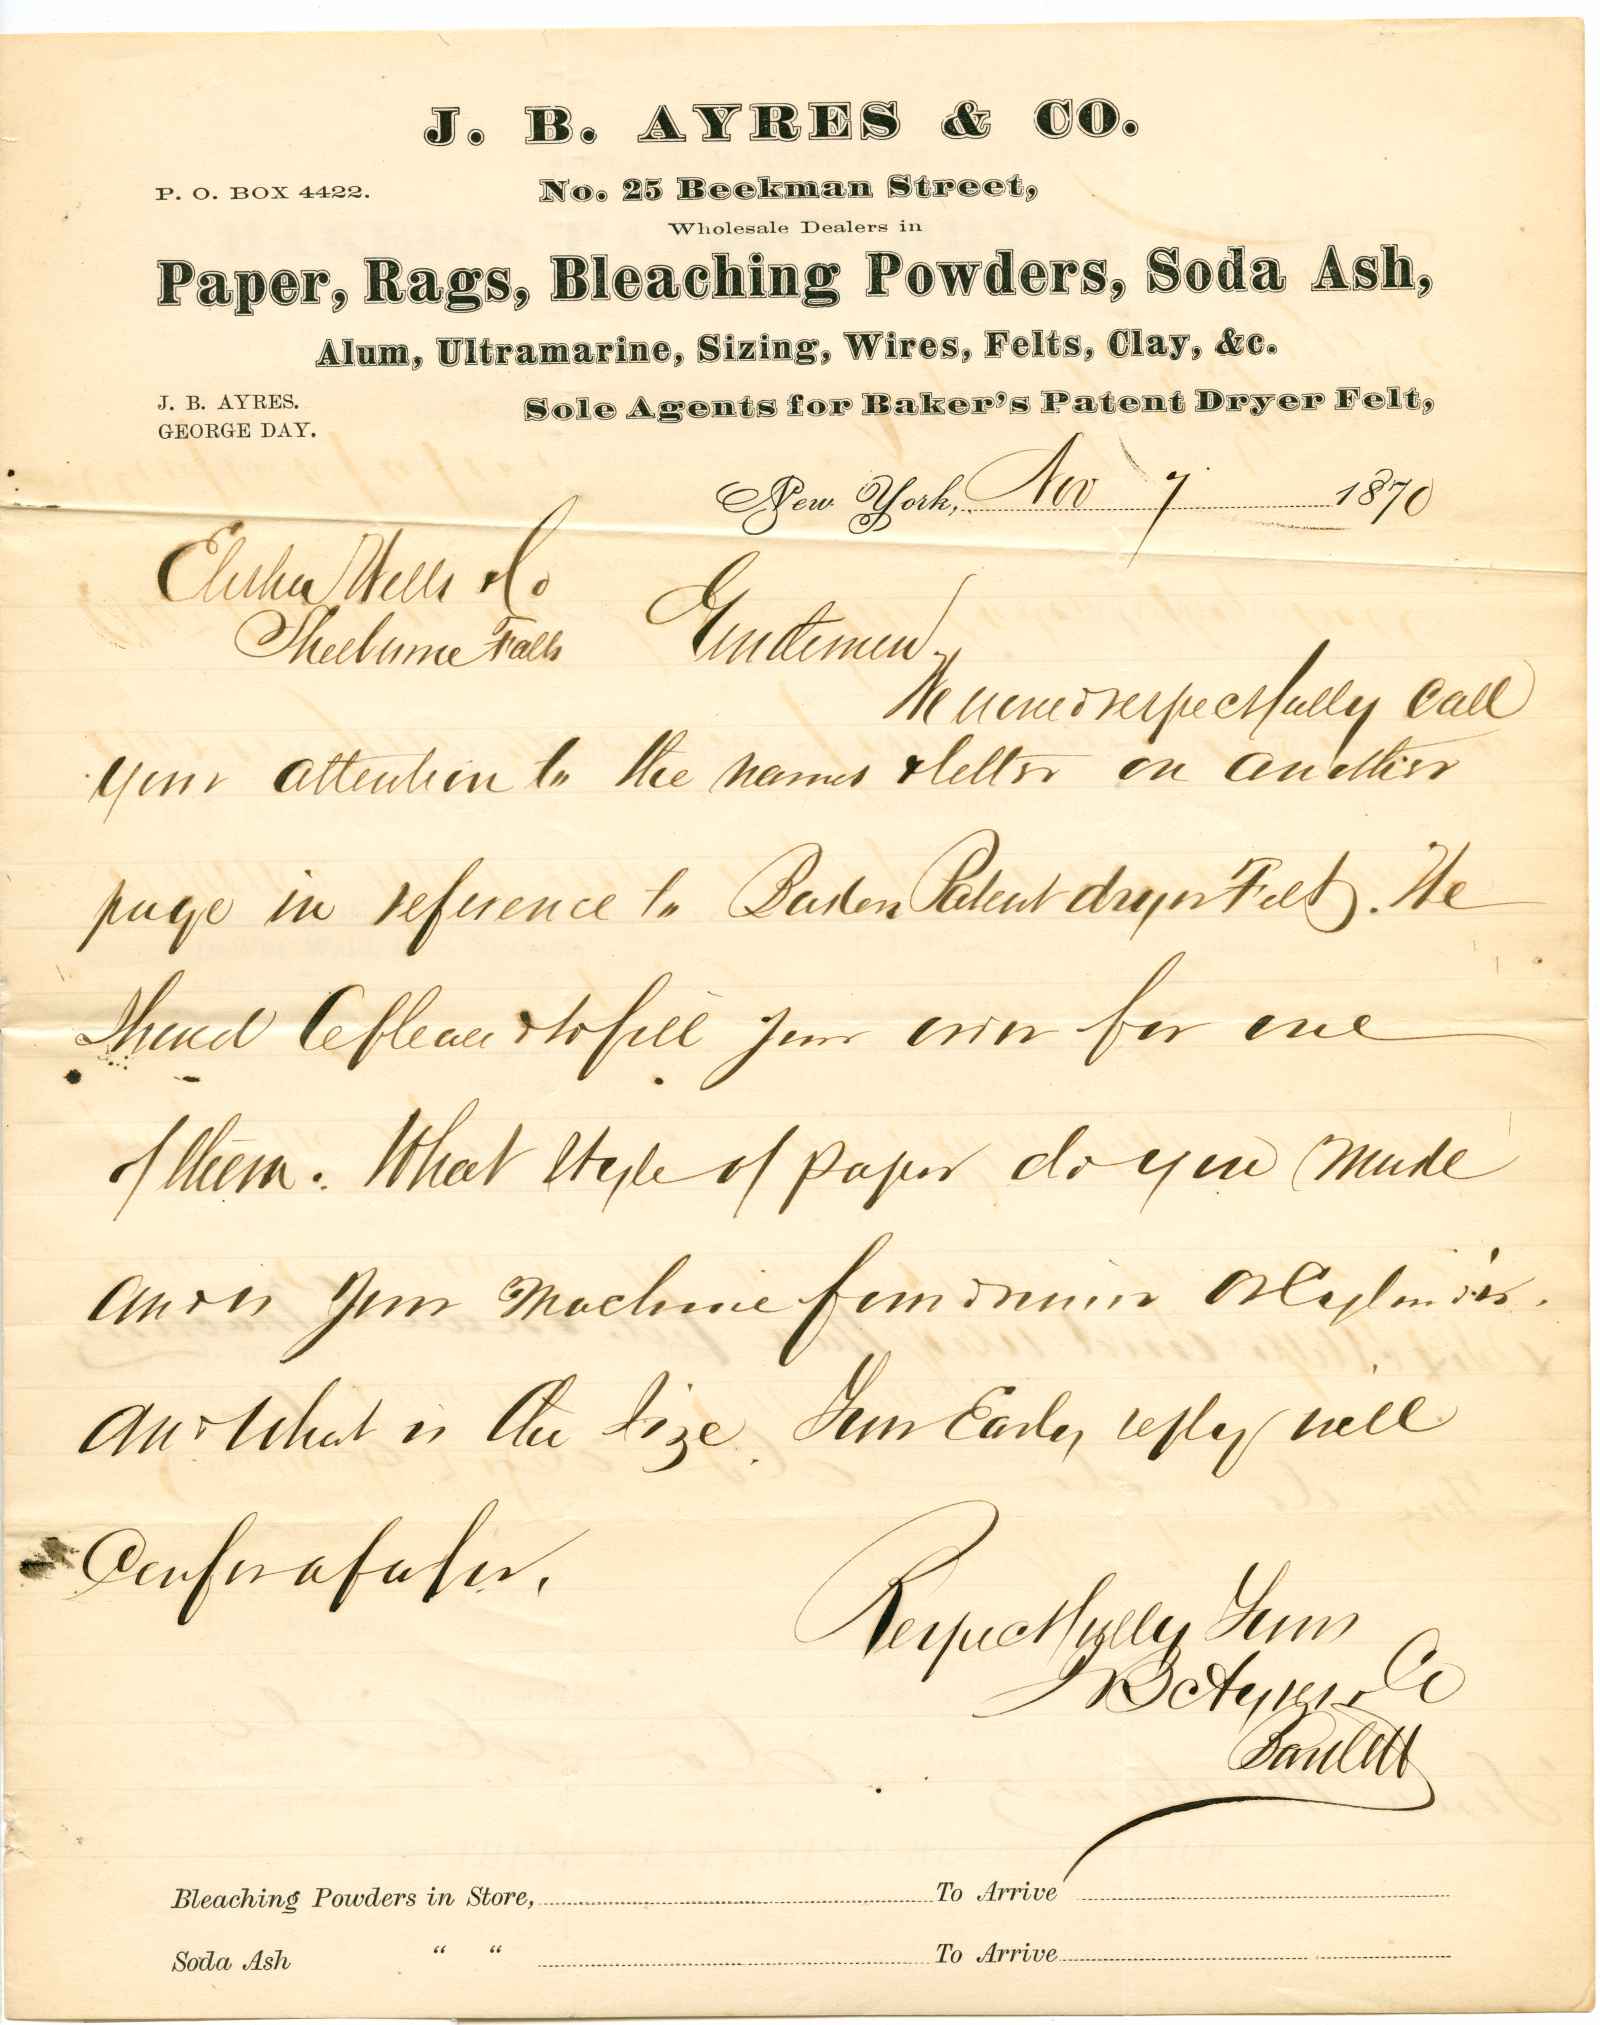 J. B. AYRES & CO.
P. O. BOX 4422. No. 25 Beekman Street,
Wholesale Dealers in
Paper, Rags, Bleaching Powders, Soda Ash,
Alum, Ultramarine, Sizing, Wires, Felts, Clay, &c.
J. B. AYRES. Sole Agents for Baker's Patent Dryer Felt,
GEORGE DAY.
New York, Nov 7 1870
Elisha Wells & Co
Shelburne Falls Gentlemen
We would respectfully call
your attention to the names & letter on another
page in reference to Bakers Patent dryer Felt. We
Should be pleased to fill your order for one
of them. What Style of paper do you make
and is your Machine foundrinier or Cylinder.
and What is the Size. Your Early reply will
Respectfully Yours
J B Ayres & Co
Bartlett
Bleaching Powders in Store, To Arrive
Soda Ash " " To Arrive